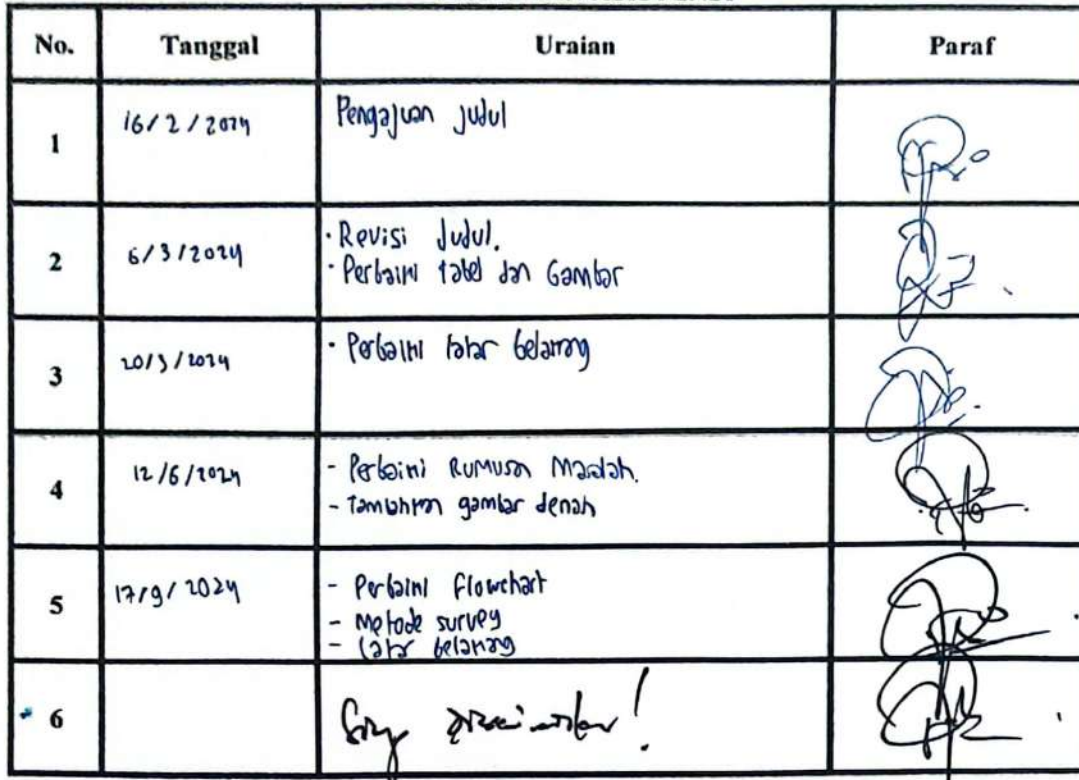 No. Tanggal Uraian Paraf
1 16/2/2024 Pengajuan Judul
2 6/3/2024 · Revisi Judul.
· Perbaiki tabel dan Gambar
3 20/3/2024 · Perbaiki latar belakang
4 12/6/2024 - Perbaiki Rumusan Masalah.
- Tambahkan gambar denah
5 17/9/2024 - Perbaiki Flowchart
- Metode survey
- latar belakang
6